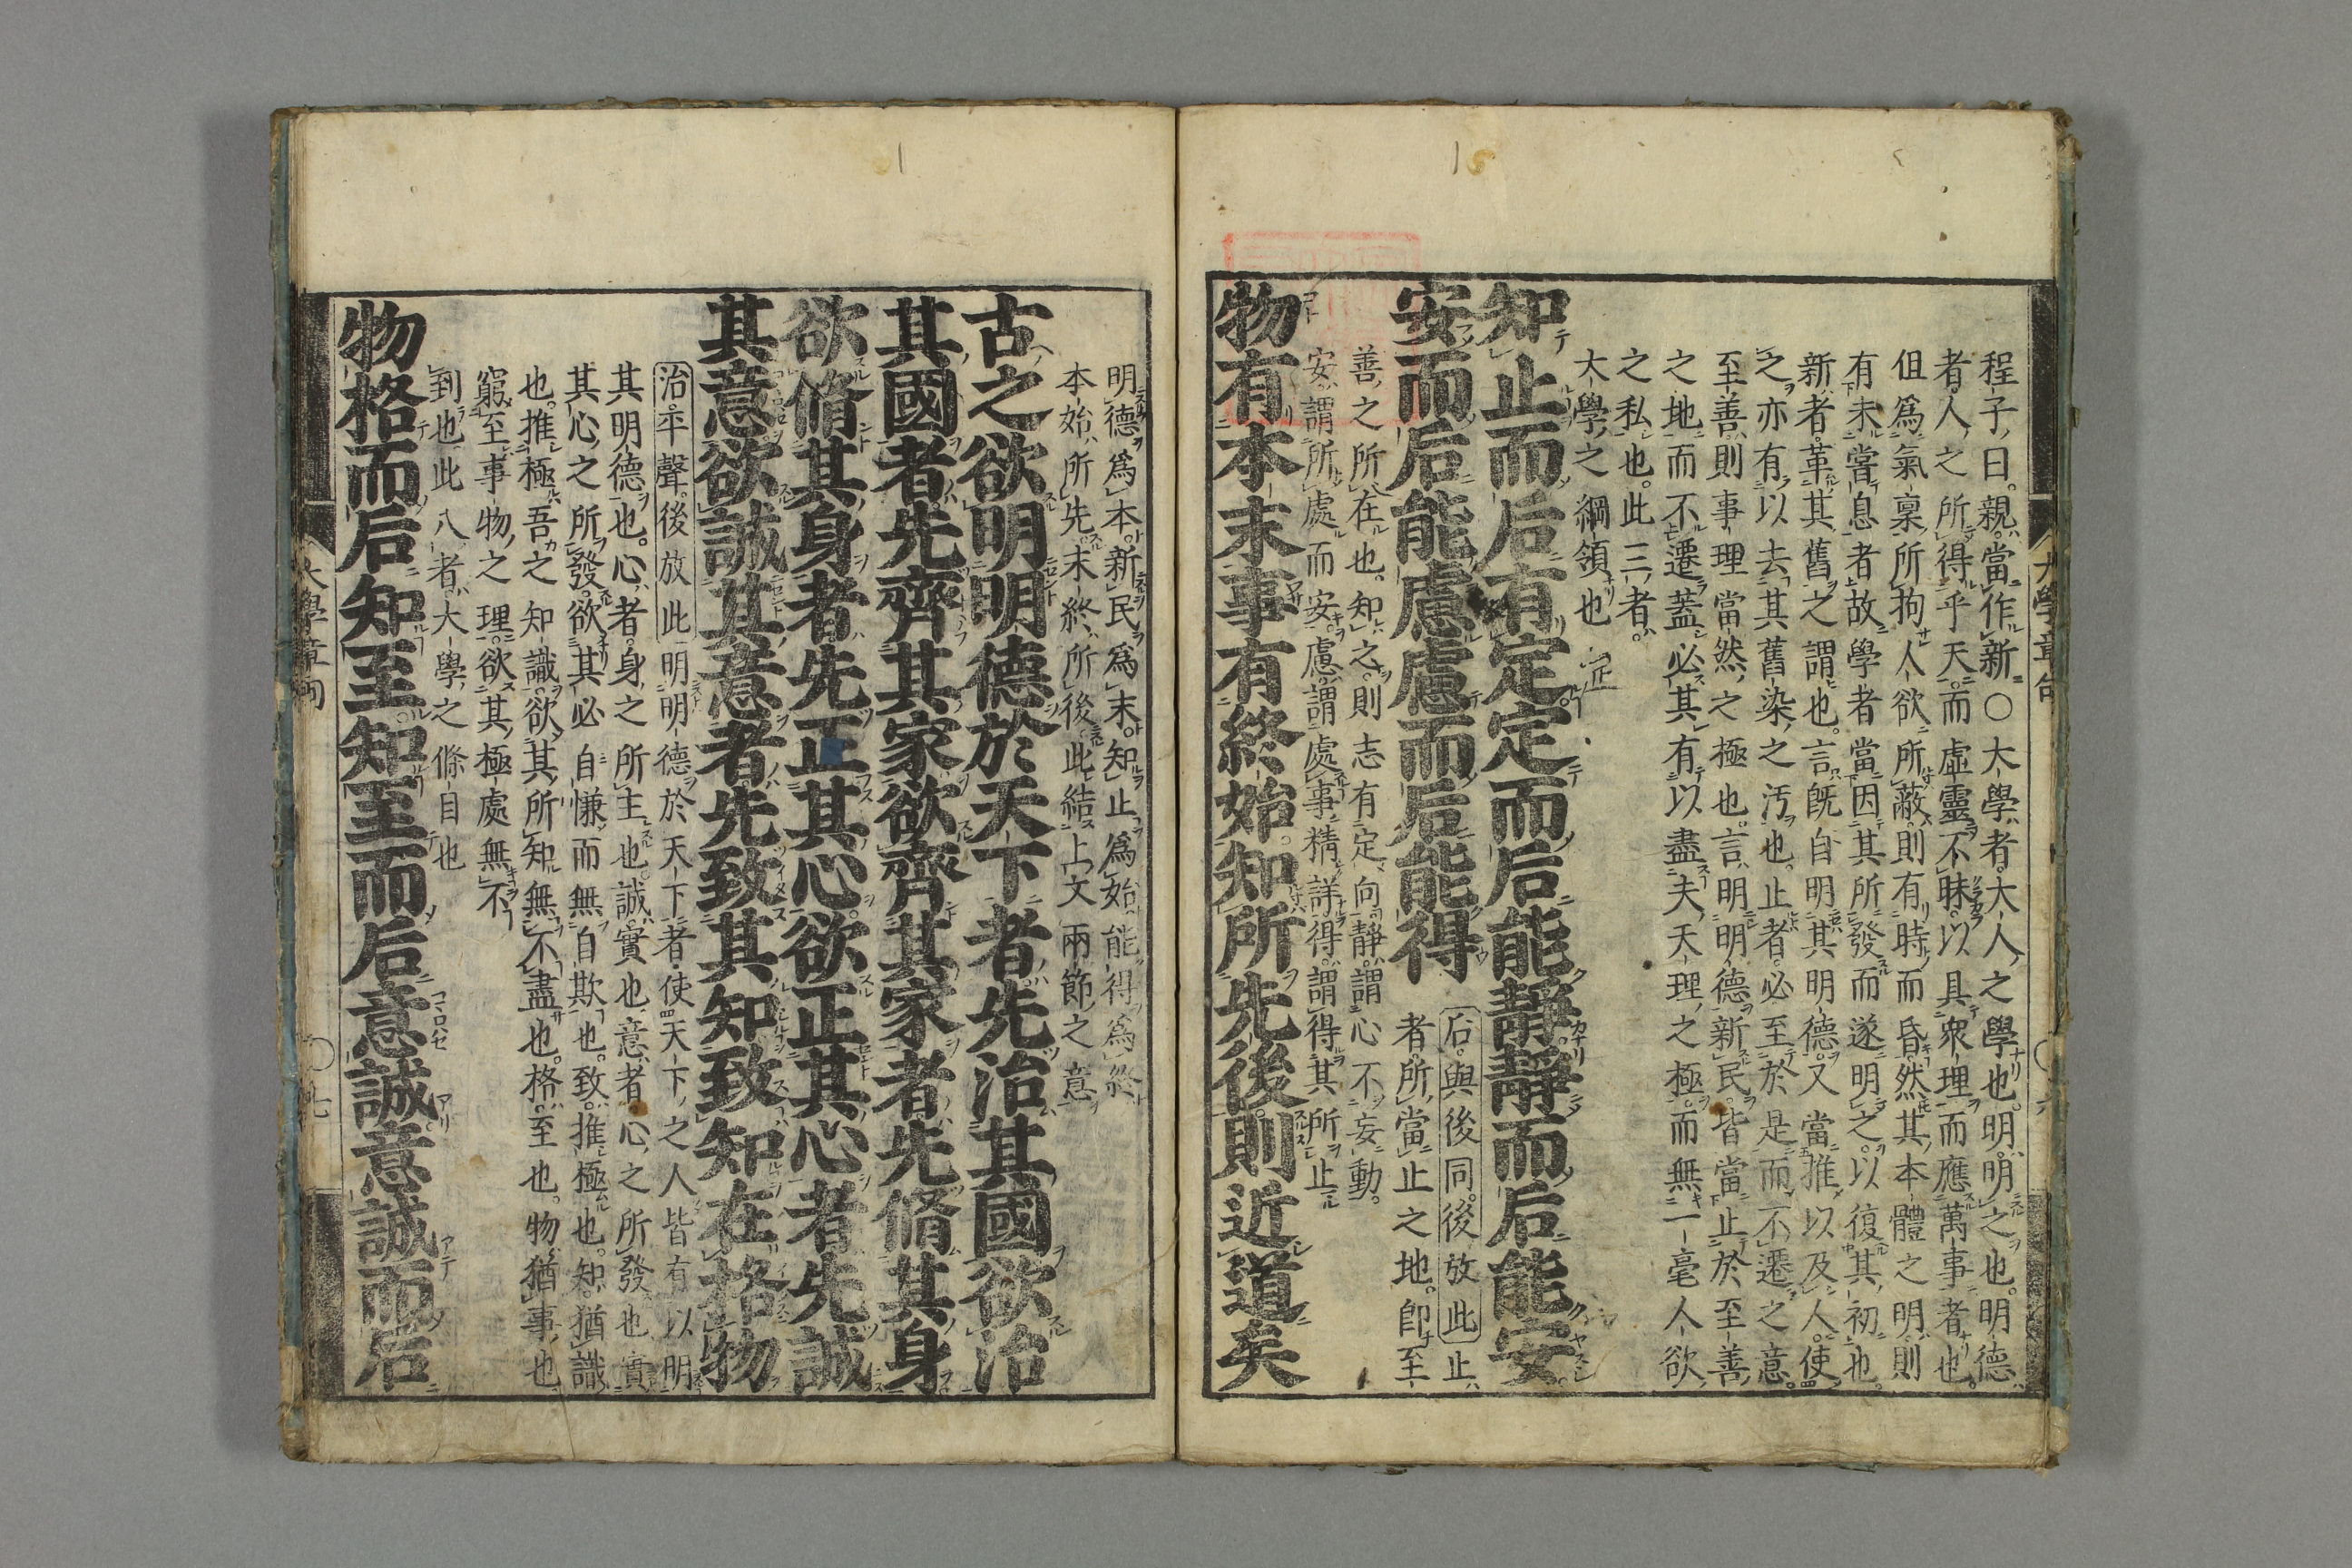 程子曰親當作新○大學者大人之學也明明之也明德
者人之所得乎天而虛靈不昧以具衆理而應萬事者也
但爲氣稟所拘人欲所蔽則有時而昏然其本體之明則
有未嘗息者故學者當因其所發而遂明之以復其初也
新者革其舊之謂也言旣自明其明德又當推以及人使
之亦有以去其舊染之汚也止者必至於是而不遷之意
至善則事理當然之極也言明明德新民皆當止於至善
之地而不遷蓋必其有以盡夫天理之極而無一毫人欲
之私也此三者
大學之綱領也
知止而后有定定而后能靜靜而后能安
安而后能慮慮而后能得
后與後同後放此止
者所當止之地卽至
善之所在也知之則志有定向靜謂心不妄動
安謂所處而安慮謂處事精詳得謂得其所止
物有本末事有終始知所先後則近道矣
大學章句
六
明德爲本新民爲末知止爲始能得爲終
本始所先末終所後此結上文兩節之意
古之欲明明德於天下者先治其國欲治
其國者先齊其家欲齊其家者先脩其身
欲脩其身者先正其心欲正其心者先誠
其意欲誠其意者先致其知致知在格物
治平聲後放此明明德於天下者使天下之人皆有以明
其明德也心者身之所主也誠實也意者心之所發也實
其心之所發欲其必自慊而無自欺也致推極也知猶識
也推極吾之知識欲其所知無不盡也格至也物猶事也
窮至事物之理欲其極處無不
到也此八者大學之條目也
物格而后知至知至而后意誠意誠而后
大學章句
七